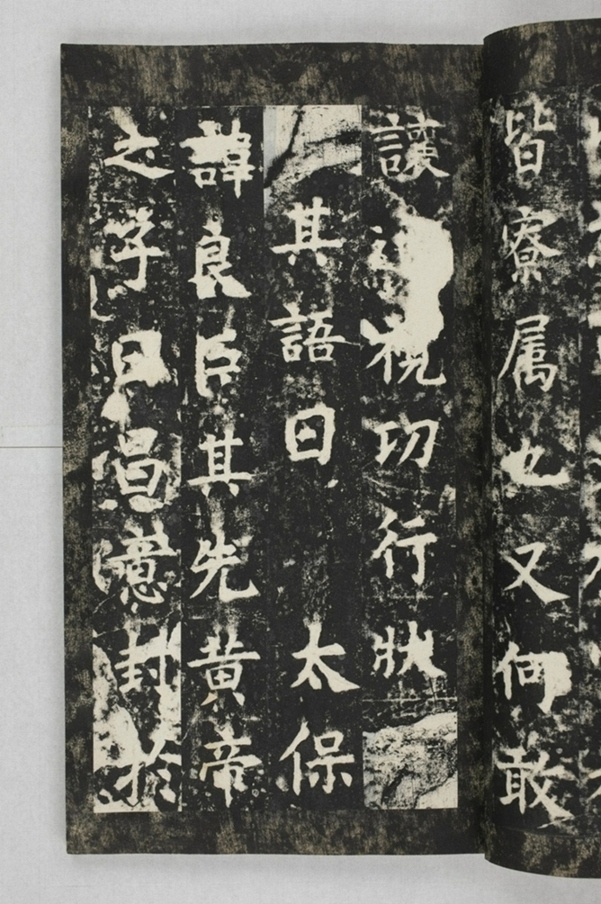 皆寮属也又何敢
讓視功行狀
其語曰 太保
諱良臣其先黄帝
之子曰昌意封扵